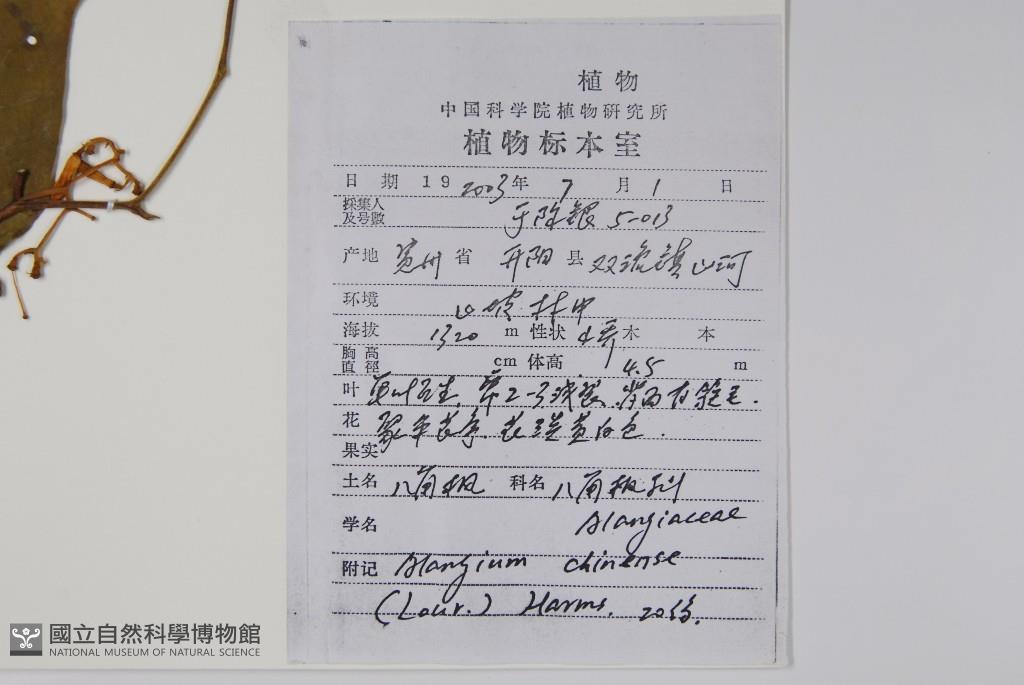 植物
中国科学院植物研究所
植物标本室
日期 19 2003年 7 月 1 日
採集人
及号数 5-013
产地 贵州 省 开阳 县 双流镇 山河
环境 山坡 林中
海拔 1320 m 性状 小乔木 本
胸高
直徑 cm 体高 4.5 m
叶 单叶互生, 常2-3浅裂,背面有毛.
花 聚伞花序. 花瓣黄白色.
果实
土名 八角枫 科名 八角枫科
学名 Alangiaceae
附记 Alangium chinense
(Lour.) Harms. 20份.
國立自然科學博物館
NATIONAL MUSEUM OF NATURAL SCIENCE